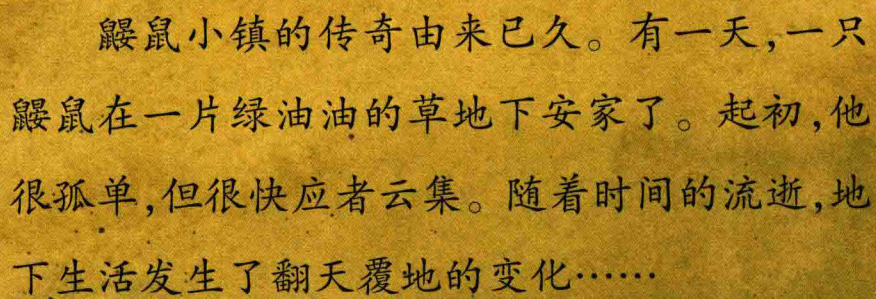 鼹鼠小镇的传奇由来已久。有一天,一只
鼹鼠在一片绿油油的草地下安家了。起初,他
很孤单,但很快应者云集。随着时间的流逝,地
下生活发生了翻天覆地的变化……